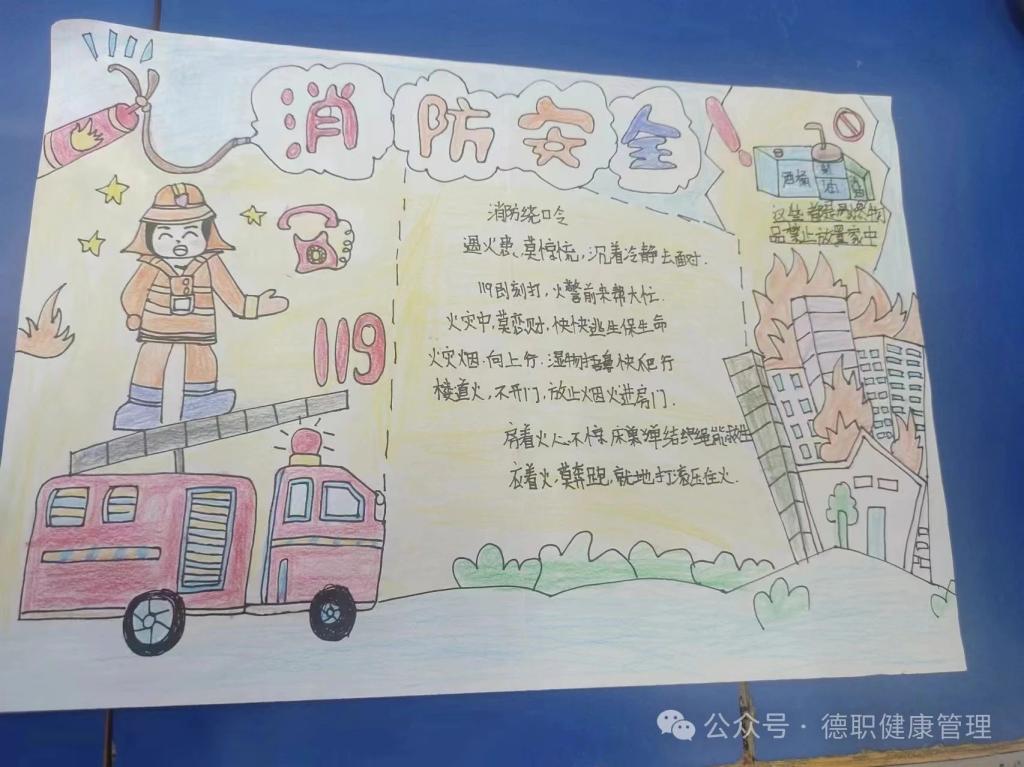 消防安全!
消防绕口令
遇火患,莫惊慌,沉着冷静去面对.
119即刻打,火警前来帮大忙.
火灾中,莫恋财,快快逃生保生命
火灾烟.向上行.湿物捂鼻快爬行
楼道火,不开门,放止烟火进房门.
房着火人不慌床单结绳能救生
衣着火,莫奔跑,就地打滚压住火.
119
酒精
油
这些都是易燃物
品禁止放置家中
公众号·德职健康管理